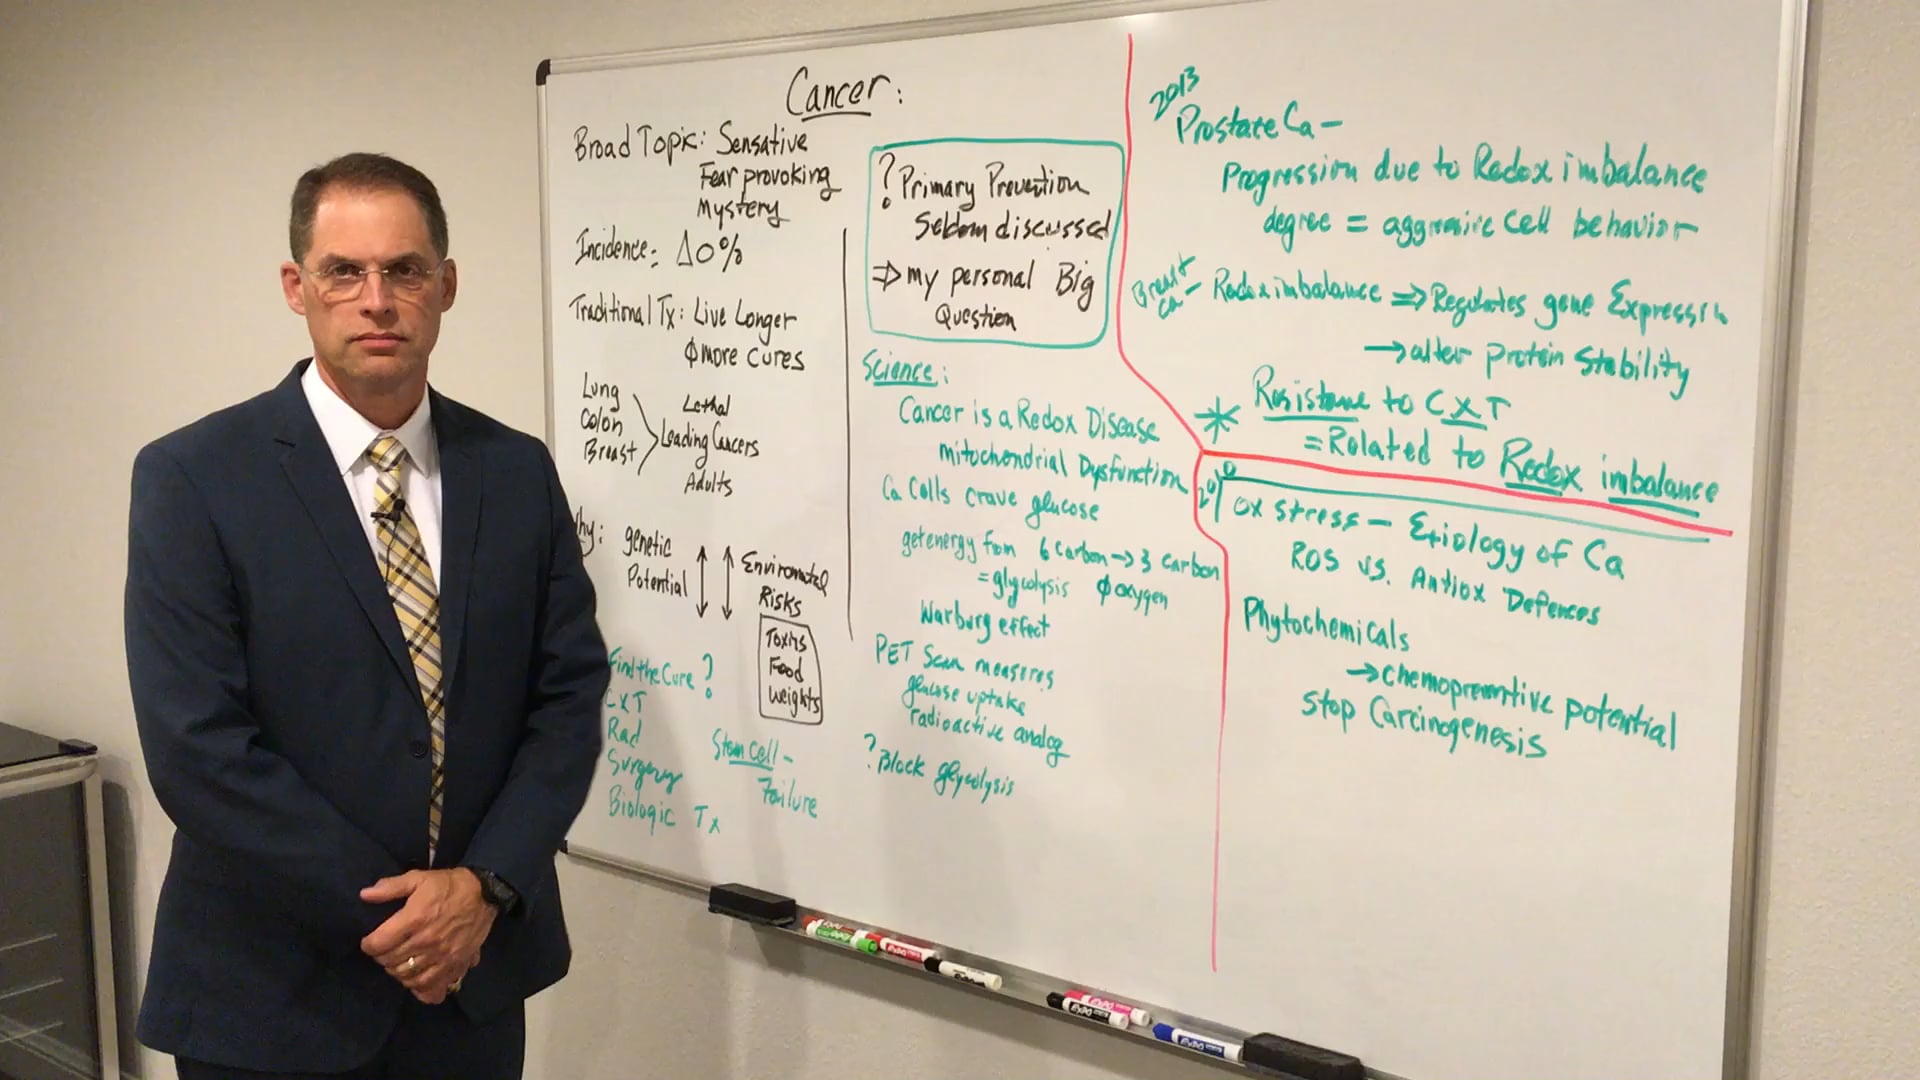 Cancer:
Broad Topic: Sensative
Fear provoking
Mystery
Incidence: Δ0%
Traditional Tx: Live Longer
∅ more cures
Lung
Colon
Breast
Lethal
Leading Cancers
Adults
hy: genetic
Potential
Enviromental
Risks
Toxins
Food
Weights
Find the Cure?
CXT
Rad
Surgery
Biologic Tx
Stem cell -
Failure
? Primary Prevention
Seldom discussed
⇒ my personal Big
Question
Science:
Cancer is a Redox Disease
mitochondrial Dysfunction
Ca Cells crave glucose
get energy from 6 carbon → 3 carbon
= glycolysis ∅ oxygen
Warburg effect
PET Scan measures
glucose uptake
radioactive analog
? Block glycolysis
2013
Prostate Ca -
Progression due to Redox imbalance
degree = aggressive cell behavior
Breast Ca - Redox imbalance ⇒ Regulates gene Expression
→ alter protein stability
* Resistane to CXT
= Related to Redox imbalance
2010
ox stress - Etiology of Ca
ROS vs. Antiox Defences
Phytochemicals
→ chemopreventive potential
stop Carcinogenesis